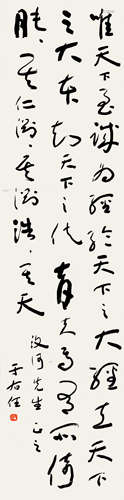 唯天下至誠為經綸天下之大經立天下
之大本知天下之化育夫焉有所倚
肫〻其仁淵〻其淵浩〻其天
河先生正之
于右任